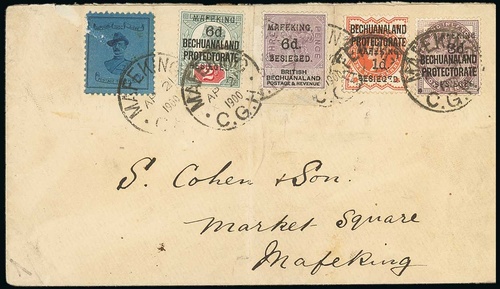 MAFEKING,
6d.
BECHUANALAND
PROTECTORATE
BESIEGED.
MAFEKING,
6d.
BESIEGED.
BRITISH
BECHUANALAND
POSTAGE & REVENUE
BECHUANALAND
PROTECTORATE
1d.
BESIEGED.
BECHUANALAND
PROTECTORATE
MAFEKING
AP
1900
C.G.H.
MAFEKING
AP
1900
C.G.H.
S. Cohen & Son.
Market Square
Mafeking